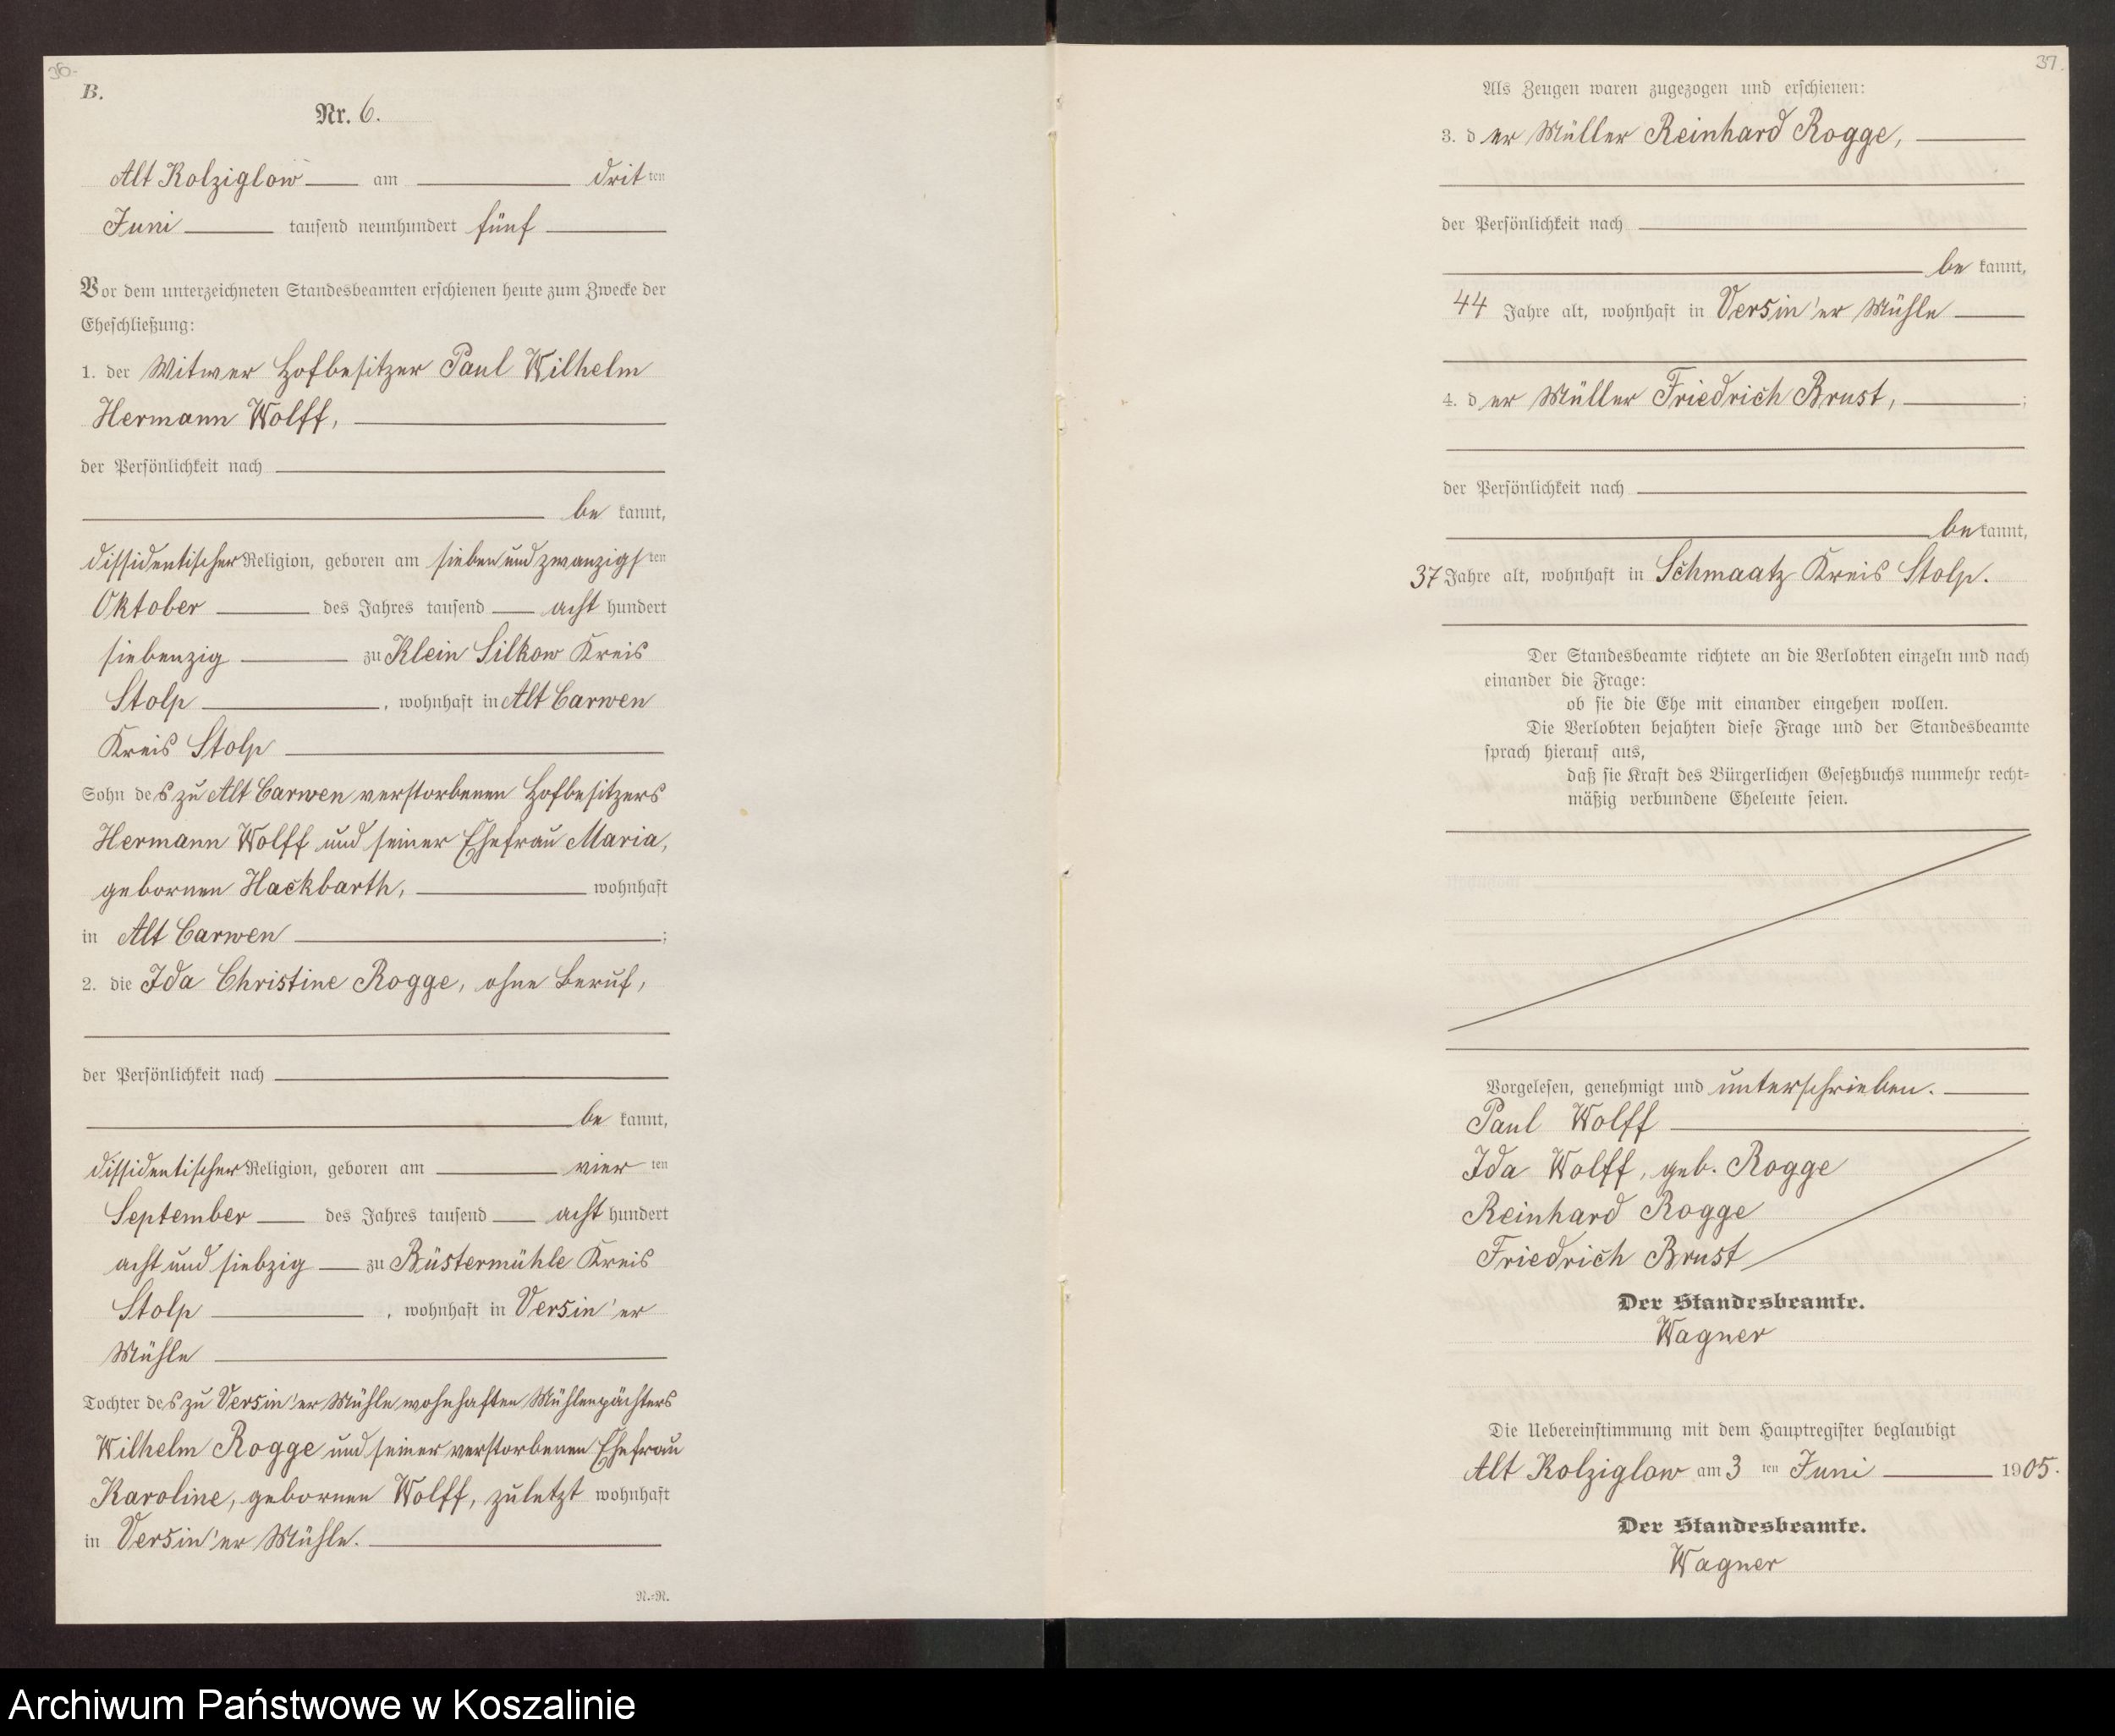 36.
B.
Nr. 6.
Alt Kolziglow am dritten
Juni tausend neunhundert fünf
Vor dem unterzeichneten Standesbeamten erschienen heute zum Zwecke der
Eheschließung:
1. der Witwer Hofbesitzer Paul Wilhelm
Hermann Wolff,
der Persönlichkeit nach
be kannt,
dissidentischer Religion, geboren am siebenundzwanzigsten
Oktober des Jahres tausend acht hundert
siebenzig zu Klein Silkow Kreis
Stolp, wohnhaft in Alt Carwen
Kreis Stolp
Sohn des zu Alt Carwen verstorbenen Hofbesitzers
Hermann Wolff und seiner Ehefrau Maria,
gebornen Hackbarth, wohnhaft
in Alt Carwen;
2. die Ida Christine Rogge, ohne Beruf,
der Persönlichkeit nach
be kannt,
dissidentischer Religion, geboren am vierten
September des Jahres tausend acht hundert
acht und siebzig zu Büstermühle Kreis
Stolp, wohnhaft in Versin'er
Mühle
Tochter des zu Versin'er Mühle wohnhaften Mühlenpächters
Wilhelm Rogge und seiner verstorbenen Ehefrau
Karoline, gebornen Wolff, zuletzt wohnhaft
in Versin'er Mühle.
N.-N.
37.
Als Zeugen waren zugezogen und erschienen:
3. der Müller Reinhard Rogge,
der Persönlichkeit nach
be kannt,
44 Jahre alt, wohnhaft in Versin'er Mühle
4. der Müller Friedrich Brust, ;
der Persönlichkeit nach
be kannt,
37 Jahre alt, wohnhaft in Schmaatz Kreis Stolp.
Der Standesbeamte richtete an die Verlobten einzeln und nach
einander die Frage:
ob sie die Ehe mit einander eingehen wollen.
Die Verlobten bejahten diese Frage und der Standesbeamte
sprach hierauf aus,
daß sie Kraft des Bürgerlichen Gesetzbuchs nunmehr recht-
mäßig verbundene Eheleute seien.
Vorgelesen, genehmigt und unterschrieben.
Paul Wolff
Ida Wolff, geb. Rogge
Reinhard Rogge
Friedrich Brust
Der Standesbeamte.
Wagner
Die Uebereinstimmung mit dem Hauptregister beglaubigt
Alt Kolziglow am 3 ten Juni 1905.
Der Standesbeamte.
Wagner
Archiwum Państwowe w Koszalinie